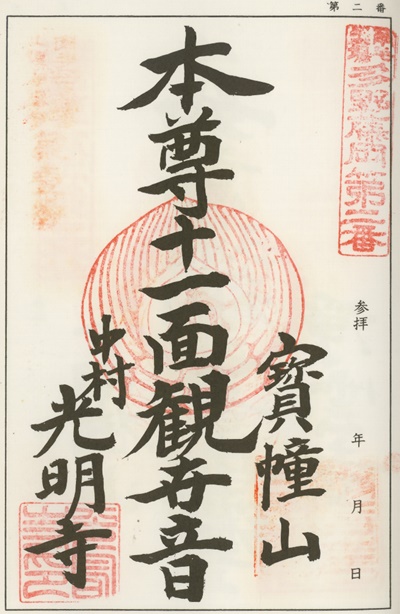 第二番
秩父郡札所第二番
参拝
年 月 日
寳幢山
本尊十一面観世音
中村
光明寺